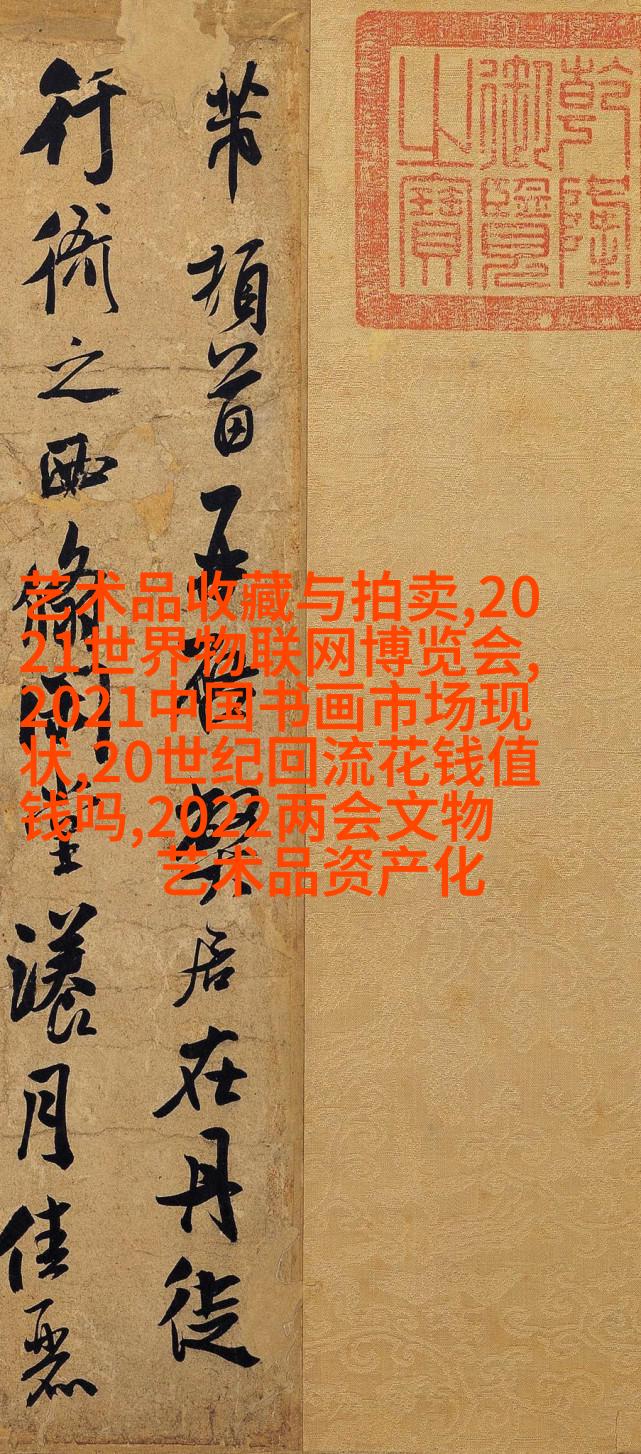 乾隆
御覽
之寶
芾頓首再啓弊居在丹徒
行衙之西翛閒堂漾月佳麗
艺术品收藏与拍卖,20
21世界物联网博览会,
2021中国书画市场现
状,20世纪回流花钱值
钱吗,2022两会文物
艺术品资产化